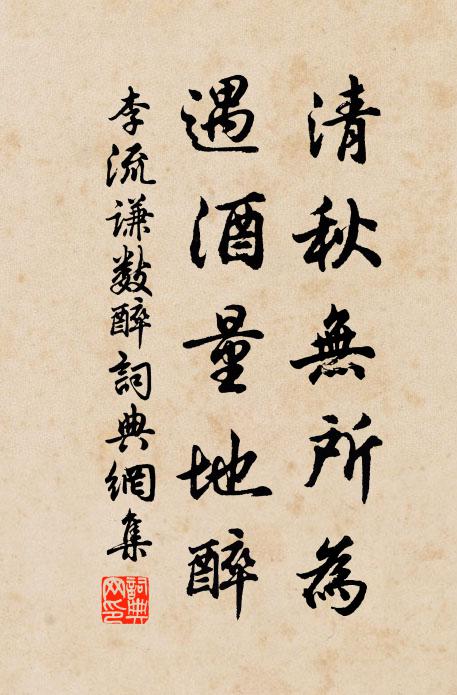 清秋無所為
遇酒量地醉
李流謙數醉詞典網集
詞典